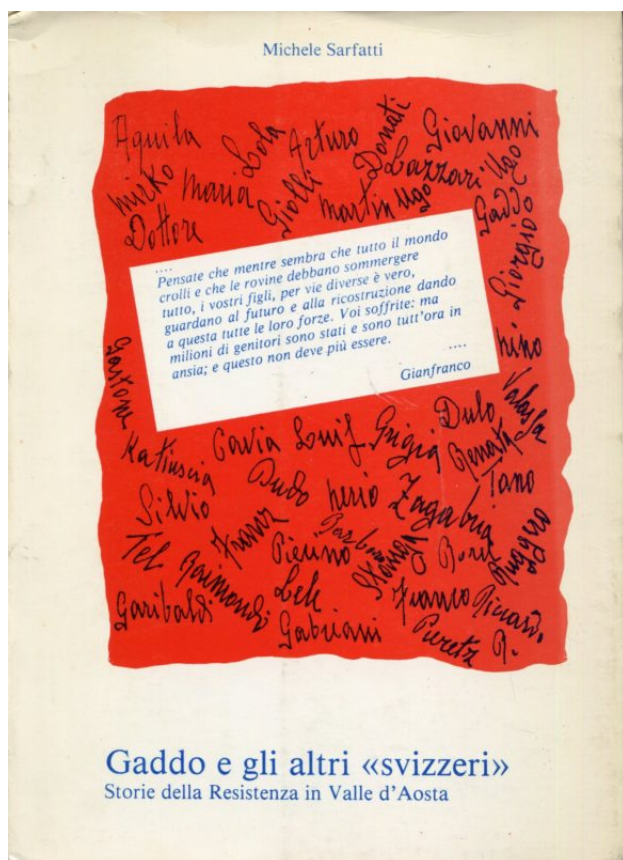 Michele Sarfatti
Aquila
Lola
Arturo
Donati
Giovanni
Mirko
Maria
Giolli
Lazzari
Ugo
Dottore
Martin
Ugo
Gaddo
Giorgio
....
Pensate che mentre sembra che tutto il mondo
crolli e che le rovine debbano sommergere
tutto, i vostri figli, per vie diverse è vero,
guardano al futuro e alla ricostruzione dando
a questa tutte le loro forze. Voi soffrite: ma
milioni di genitori sono stati e sono tutt'ora in
ansia; e questo non deve più essere.
....
Gianfranco
Gastone
Nino
Katiuscia
Luis
Grigia
Dulo
Renata
Silvio
Dudo
Nerio
Zagabria
Tano
Tel
Franz
Picino
Ruggero
Garibaldi
Raimondi
Lele
Franco
Gabriani
R.
Gaddo e gli altri «svizzeri»
Storie della Resistenza in Valle d'Aosta